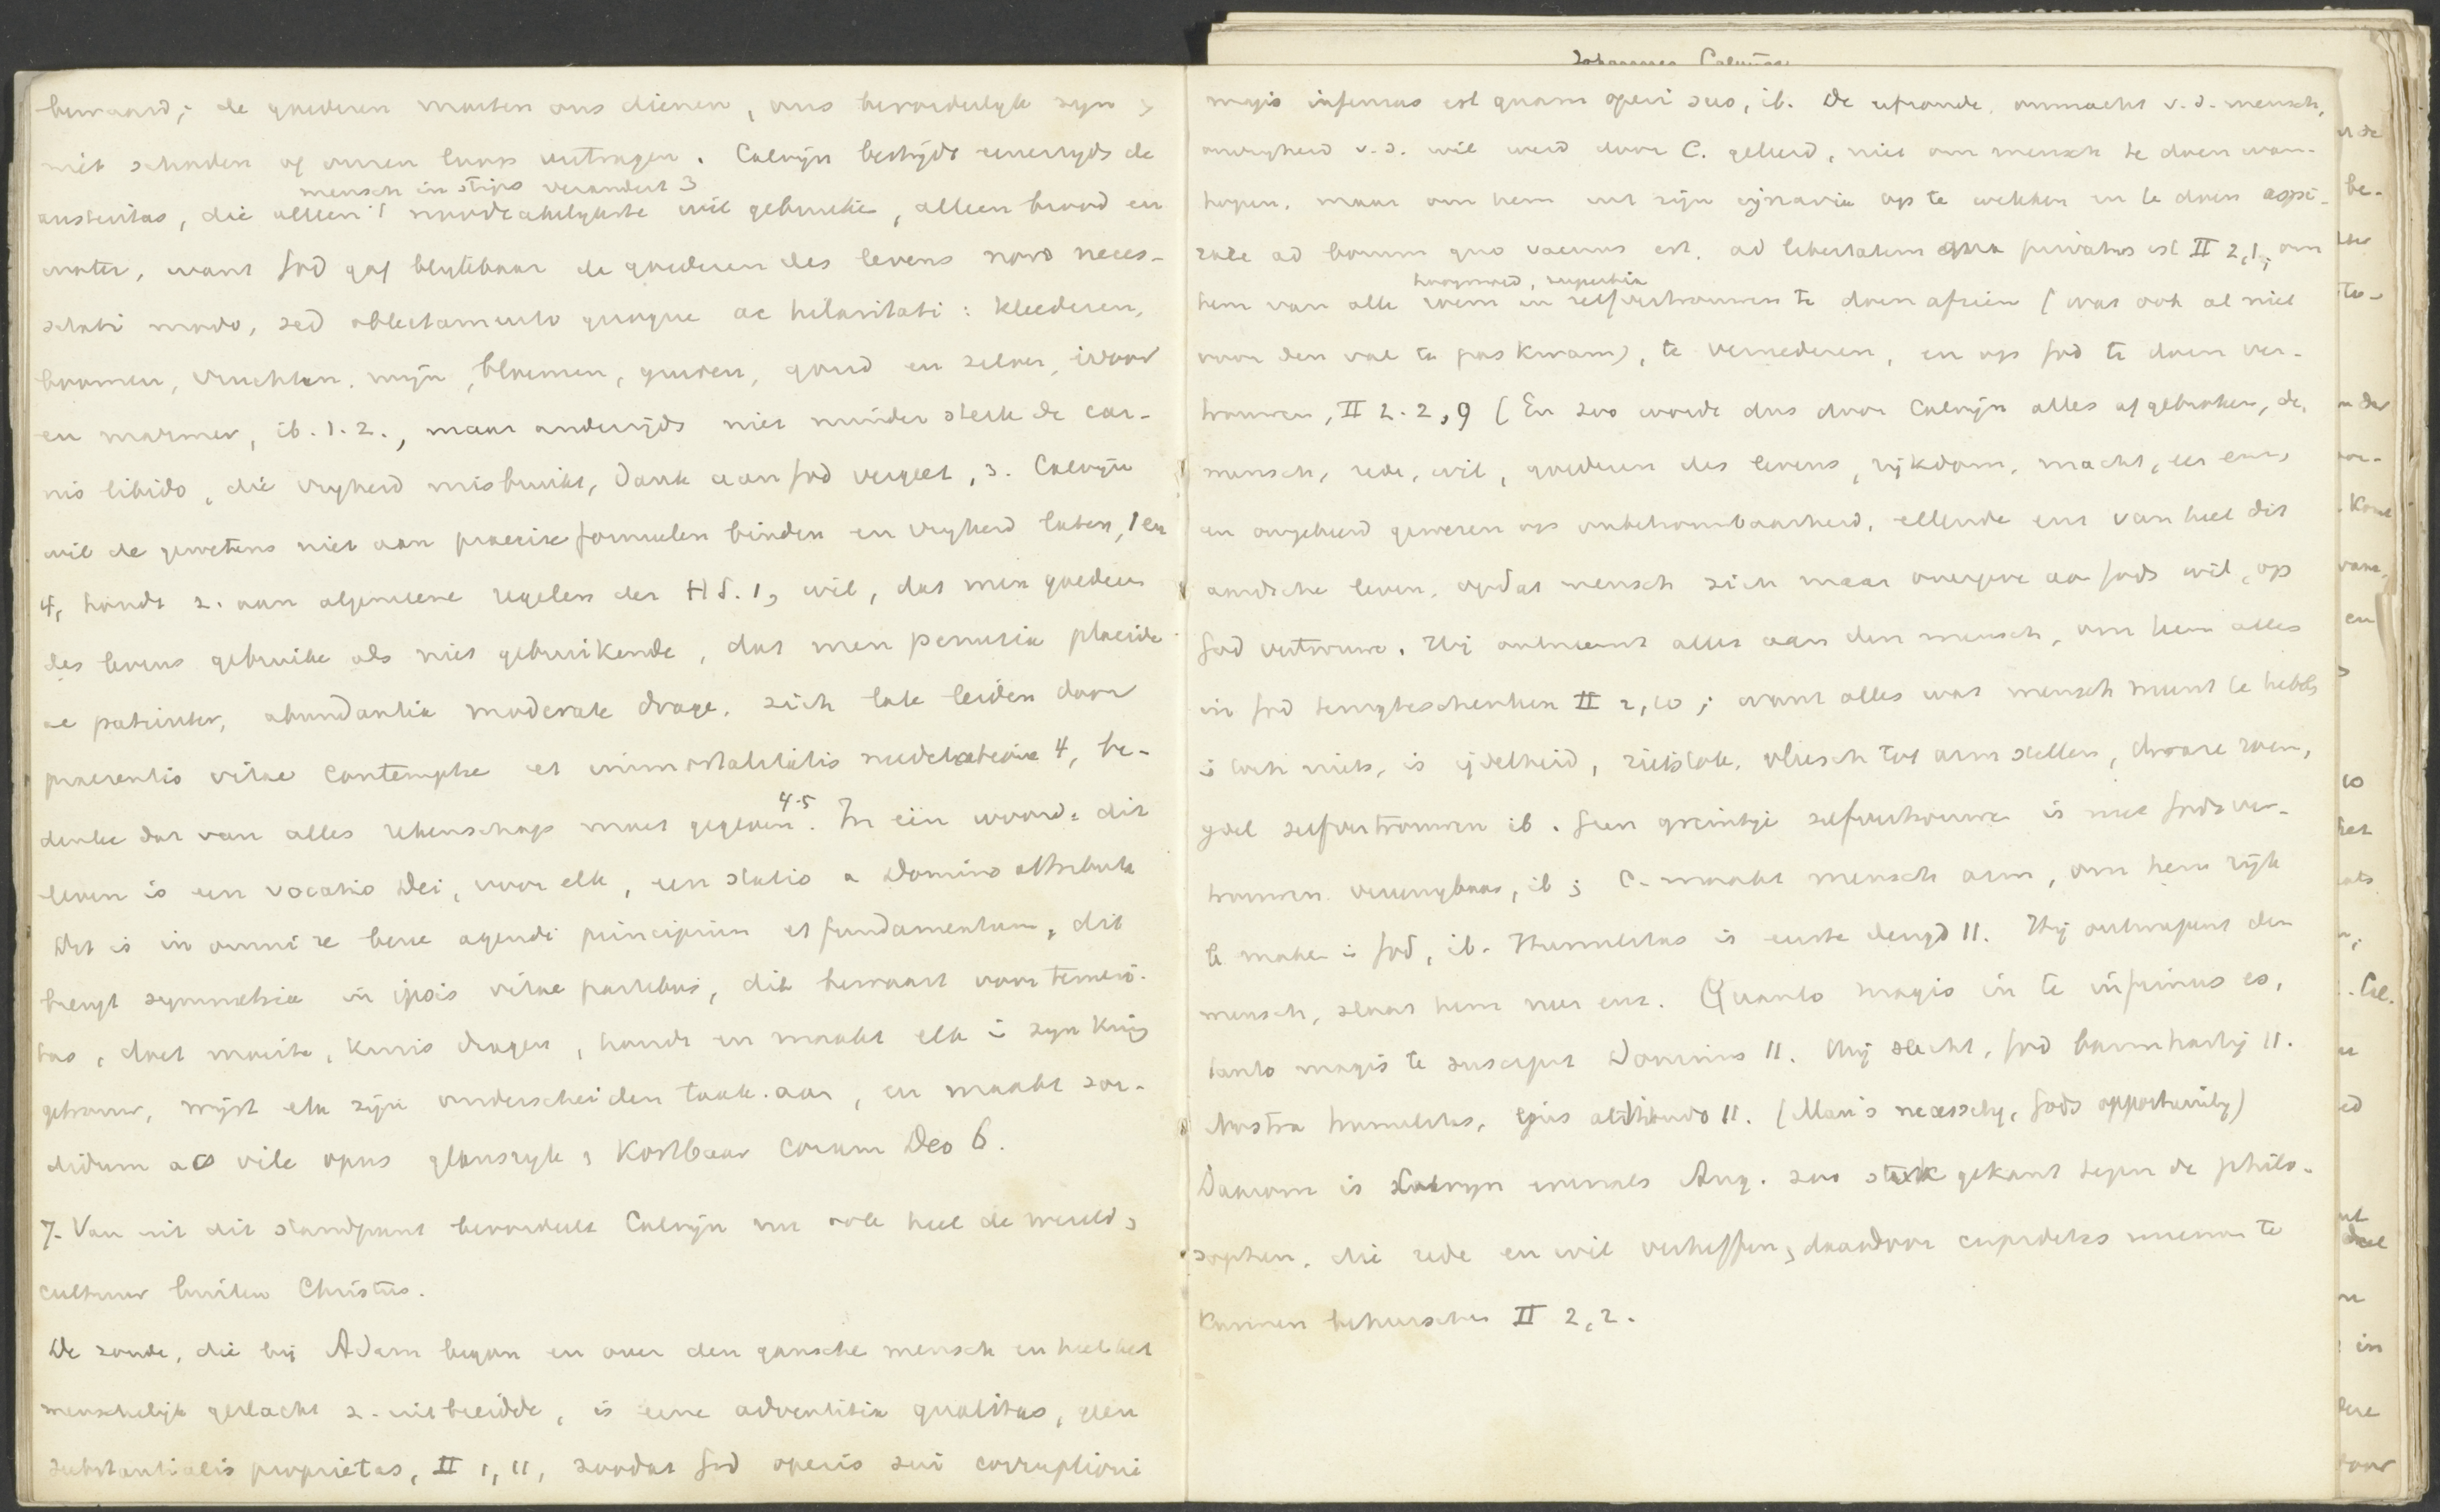 bewaard; de goederen moeten ons dienen, ons bevorderlijk zijn &
niet schaden of onzen loop vertragen. Calvijn bestrijdt eenerzijds de
mensch in stips verandert 3
austeritas, die alleen 't noodzakelijkste wil gebruiken, alleen brood en
water, want God gaf blijkbaar de goederen des levens non neces-
sitati modo, sed oblectamento quoque ac hilaritati: kleederen,
boomen, vruchten, wijn, bloemen, geuren, goud en zilver, ivoor
en marmer, ib. 1. 2., maar anderzijds niet minder sterk de car-
nis libido, die vrijheid misbruikt, dank aan God vergeet, 3. Calvijn
wil de gewetens niet aan precise formulen binden en vrijheid laten, 1 en
4, houdt z. aan algemeene regelen der HS. 1, wil, dat men goederen
des levens gebruike als niet gebruikende, dat men penuria placide
ac patienter, abundantia moderate drage, zich late leiden door
praesentis vitae contemptus et immortalitatis meditatione 4, be-
denke dat van alles rekenschap moet gegeven 4-5. In één woord: dit
leven is een vocatio Dei, voor elk, een statio a Domino attributa
Dit is in omni re bene agendi principium et fundamentum, dit
brengt symmetria in ipsis vitae partibus, dit bewaart voor temeri-
tas, doet moeite, kruis dragen, houdt en maakt elk i zijn kring
getrouw, wijst elk zijn onderscheiden taak aan, en maakt sor-
didum ac vile opus glansrijk & kostbaar coram Deo 6.
7. Van uit dit standpunt beoordeelt Calvijn nu ook heel de wereld &
cultuur buiten Christus.
De zonde, die bij Adam begon en over den gansche mensch en heel het
menschelijk geslacht z. uitbreidde, is eene adventitia qualitas, geen
substantialis proprietas, II 1, 11, zoodat God operis sui corruptioni
Johannes Calvijn
magis infensus est quam operi suo, ib. De onmacht v.d. mensch,
onvrijheid v.d. wil werd door C. geleerd, niet om mensch te doen wan-
hopen, maar om hem uit zijn ignavia op te wekken en te doen aspi-
rare ad bonum quo vacuus est, ad libertatem qua privatus est II 2, 1, om
hoogmoed, superbia
hem van alle roem en zelfvertrouwen te doen afzien (wat ook al niet
voor den val te pas kwam), te vernederen, en op God te doen ver-
trouwen, II 2. 2, 9 (En zoo wordt dus door Calvijn alles afgebroken, de
mensch, rede, wil, goederen des levens, rijkdom, macht, eer enz,
en ongeleerd gewezen op onbetrouwbaarheid, ellende enz van heel dit
aardsche leven, opdat mensch zich maar overgeve aan Gods wil, op
God vertrouwe. Hij ontneemt alles aan den mensch, om hem alles
in God terugteschenken II 2, 10; want alles wat mensch meent te hebben
is toch niets, is ijdelheid, vleesch tot arm stellen, dwaze roem,
ijdel zelfvertrouwen ib. Geen greintje zelfvertrouwen is met Godsver-
trouwen vereenigbaar, ib; C. maakt mensch arm, om hem rijk
te maken i God, ib. Humilitas is eerste deugd 11. Hij ontwapent den
mensch, slaat hem neer enz. Quanto magis in te infirmus es,
tanto magis te suscipit Dominus 11. Wij slecht, God barmhartig 11.
Nostra humilitas, ejus altitudo 11. (Man's necessity, Gods opportunity)
Daarom is Calvijn evenals Aug. zoo sterk gekant tegen de philo-
sophen, die rede en wil verheffen, daardoor cupiditas meenen te
kunnen beheerschen II 2, 2.